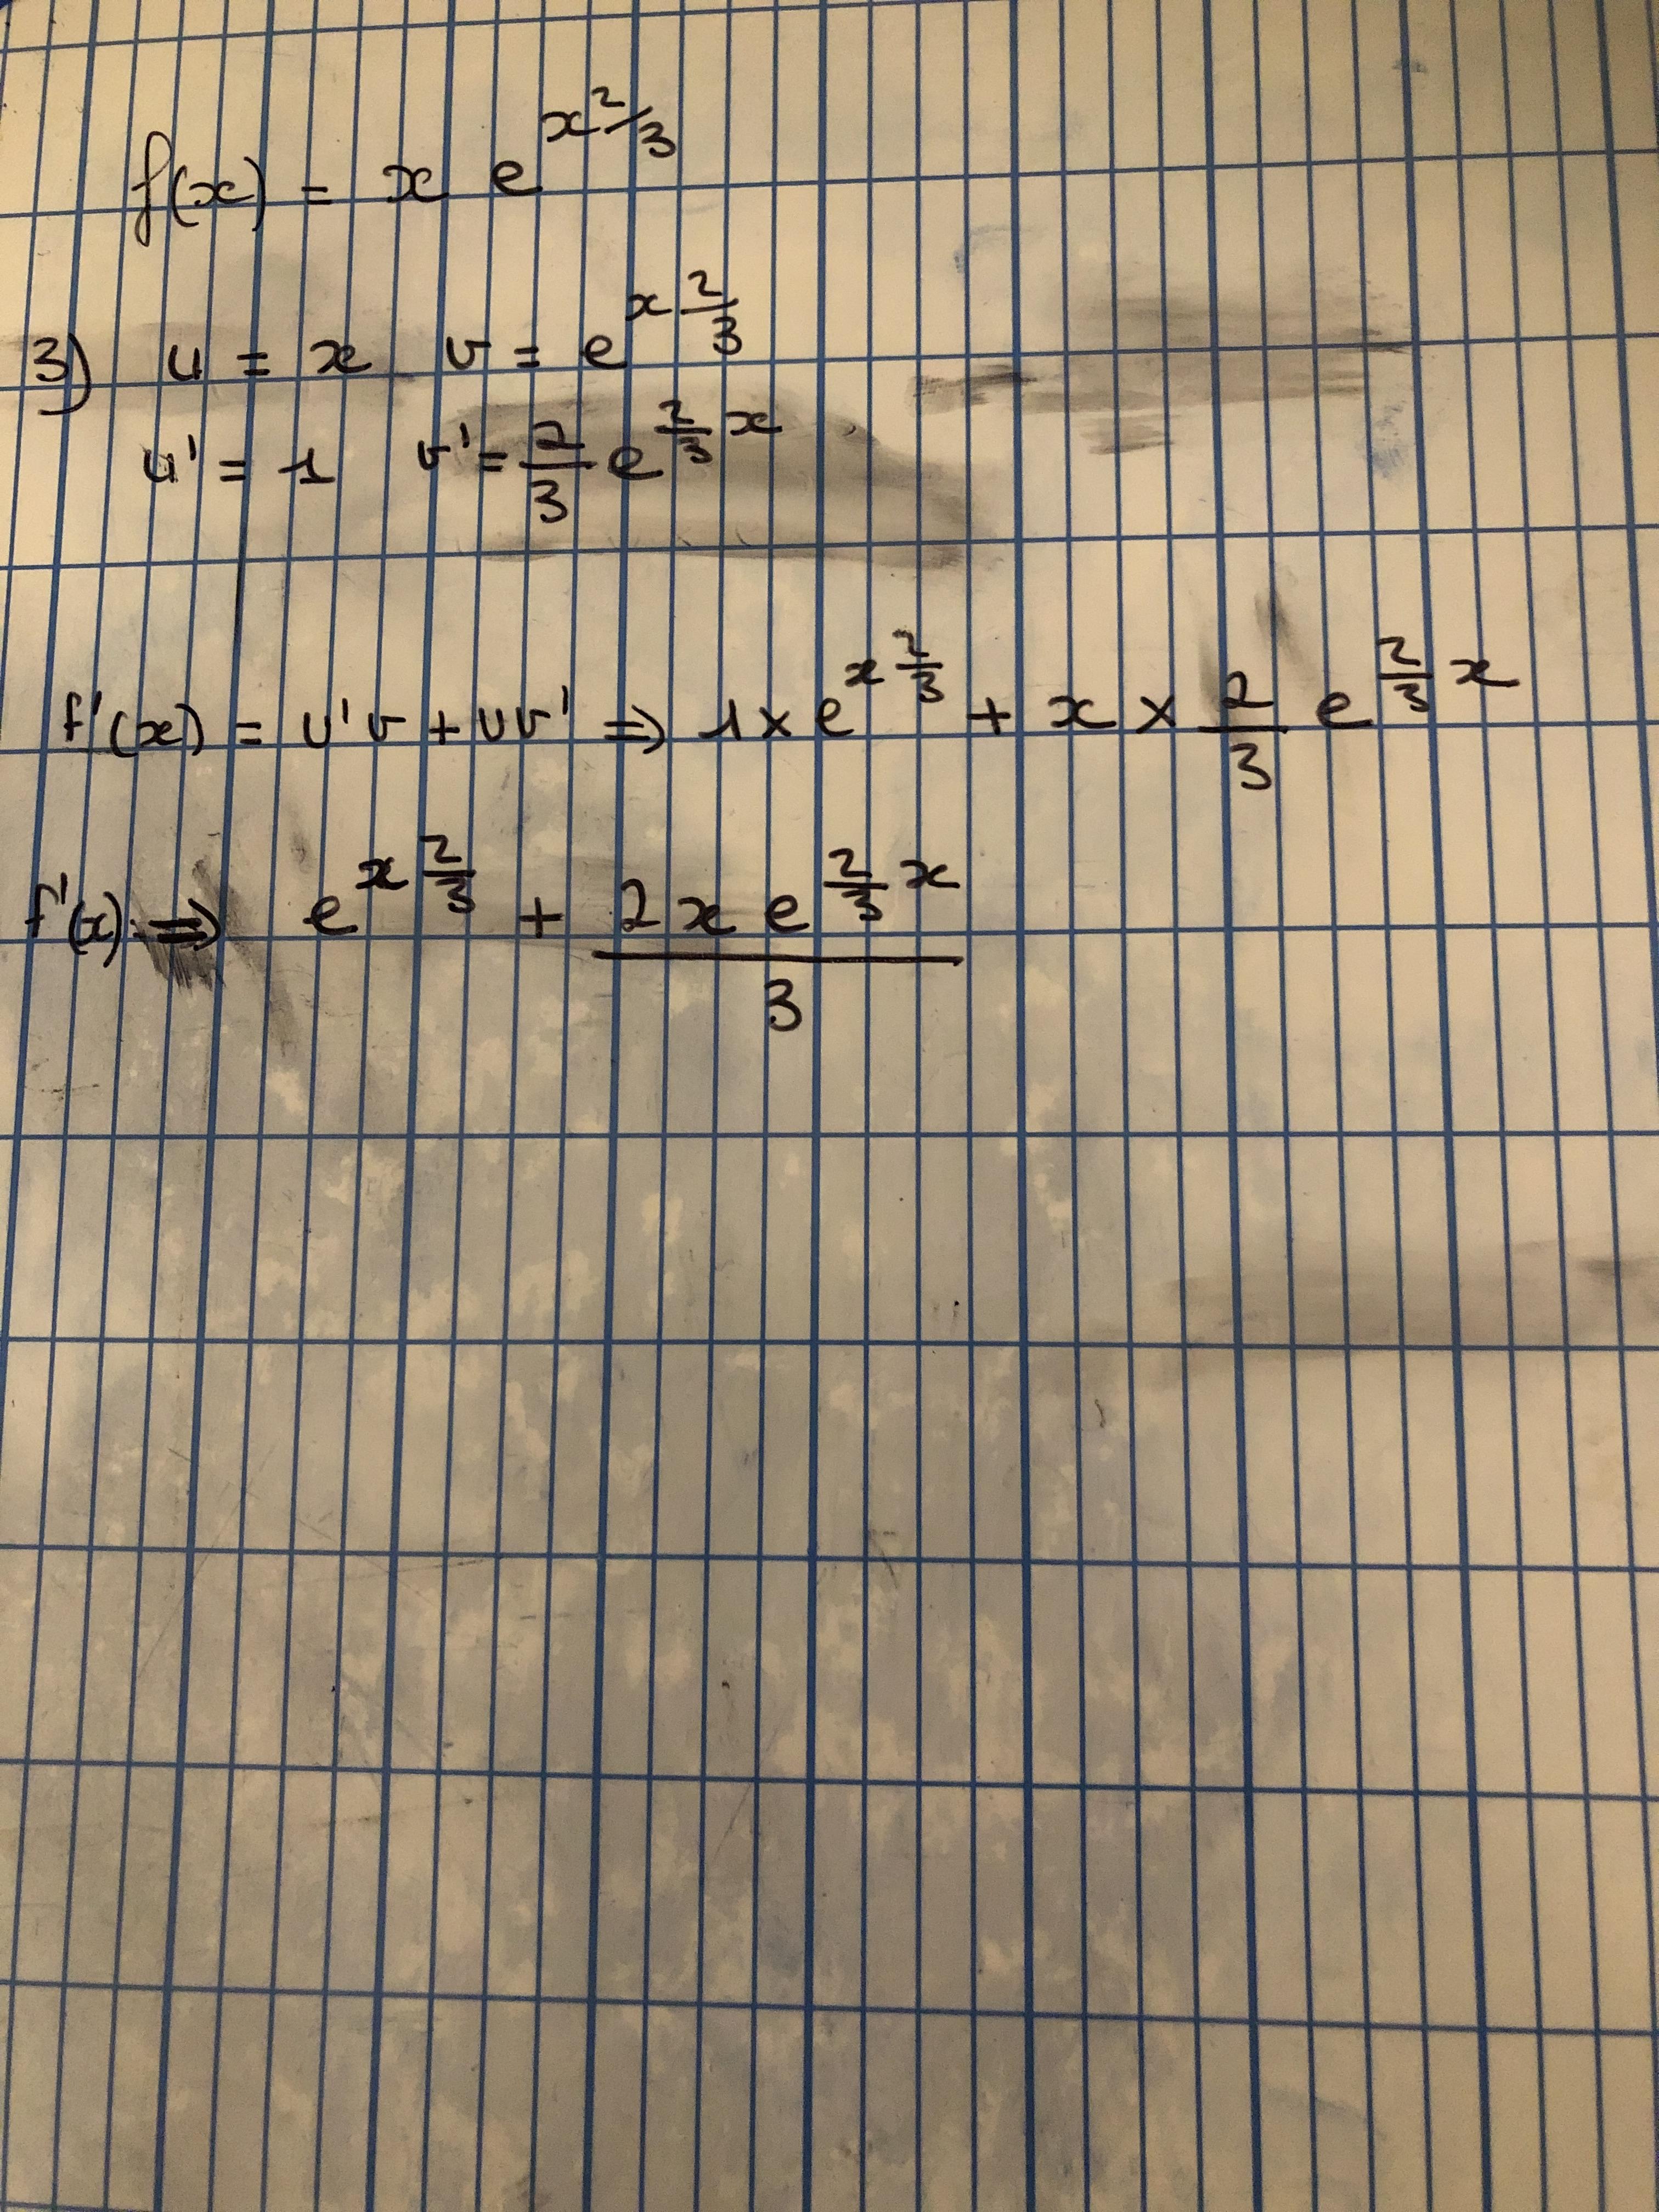 f(x) = x e^{x^{2/3}}
3) u = x v = e^{x^{\frac{2}{3}}}
u' = 1 v' = \frac{2}{3} e^{\frac{2}{3}x}
f'(x) = u'v + uv' ⇒ 1 × e^{x^{\frac{2}{3}}} + x × \frac{2}{3} e^{\frac{2}{3}x}
f'(x) ⇒ e^{x^{\frac{2}{3}}} + \frac{2x e^{\frac{2}{3}x}}{3}